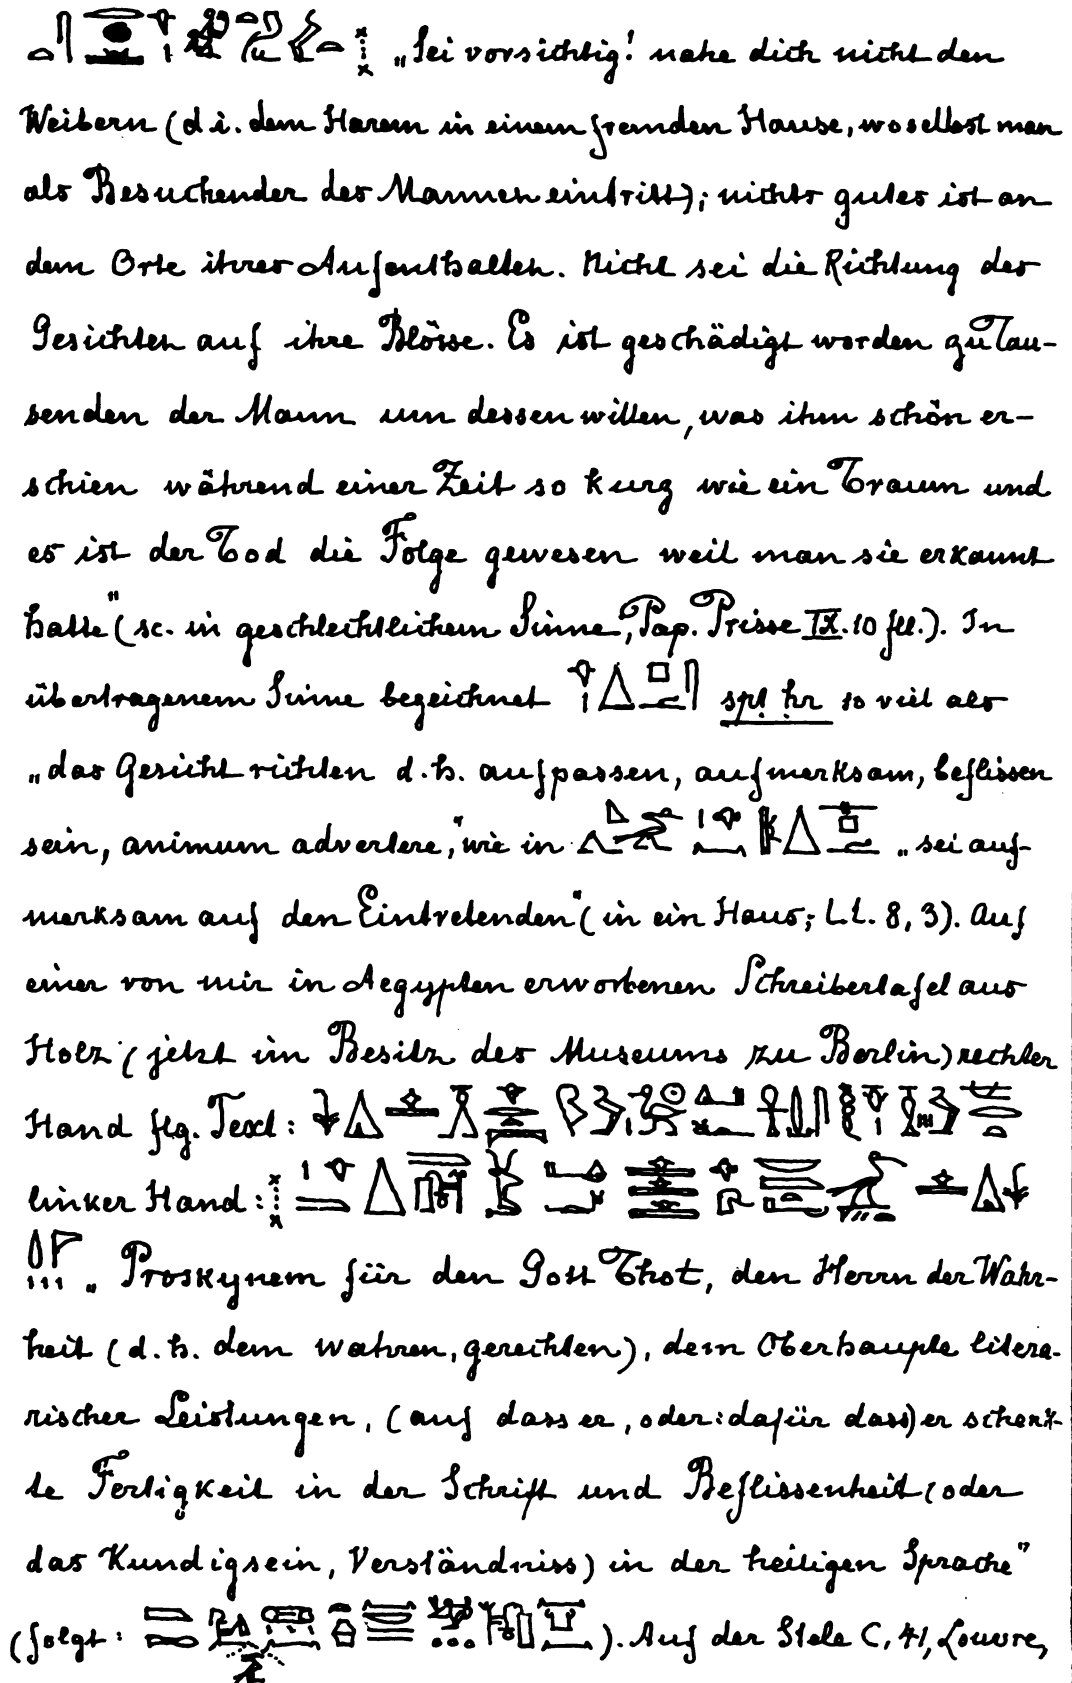 „Sei vorsichtig! nahe dich nicht den
Weibern (d.i. dem Harem in einem fremden Hause, woselbst man
als Besuchender des Mannes eintritt); nichts gutes ist an
dem Orte ihres Aufenthaltes. Nicht sei die Richtung des
Gesichtes auf ihre Blösse. Es ist geschädigt worden zu Tau-
senden der Mann um dessen willen, was ihm schön er-
schien während einer Zeit so kurz wie ein Traum und
es ist der Tod die Folge gewesen weil man sie erkannt
hatte" (sc. in geschlechtlichem Sinne, Pap. Prisse IX.10 fll.). In
übertragenem Sinne bezeichnet spṭ ḥr so viel als
„das Gesicht richten d.h. aufpassen, aufmerksam, beflissen
sein, animum advertere," wie in „sei auf-
merksam auf den Eintretenden" (in ein Haus; l.l. 8, 3). Auf
einer von mir in Aegypten erworbenen Schreibertafel aus
Holz (jetzt im Besitz des Museums zu Berlin) rechter
Hand flg. Text:
linker Hand:
„Proskynem für den Gott Thot, den Herrn der Wahr-
heit (d.h. dem wahren, gerechten), dem Oberhaupte litera-
rischer Leistungen, (auf dass er, oder: dafür dass) er schenk-
te Fertigkeit in der Schrift und Beflissenheit (oder
das Kundigsein, Verständniss) in der heiligen Sprache"
(folgt: ). Auf der Stele C, 41, Louvre,